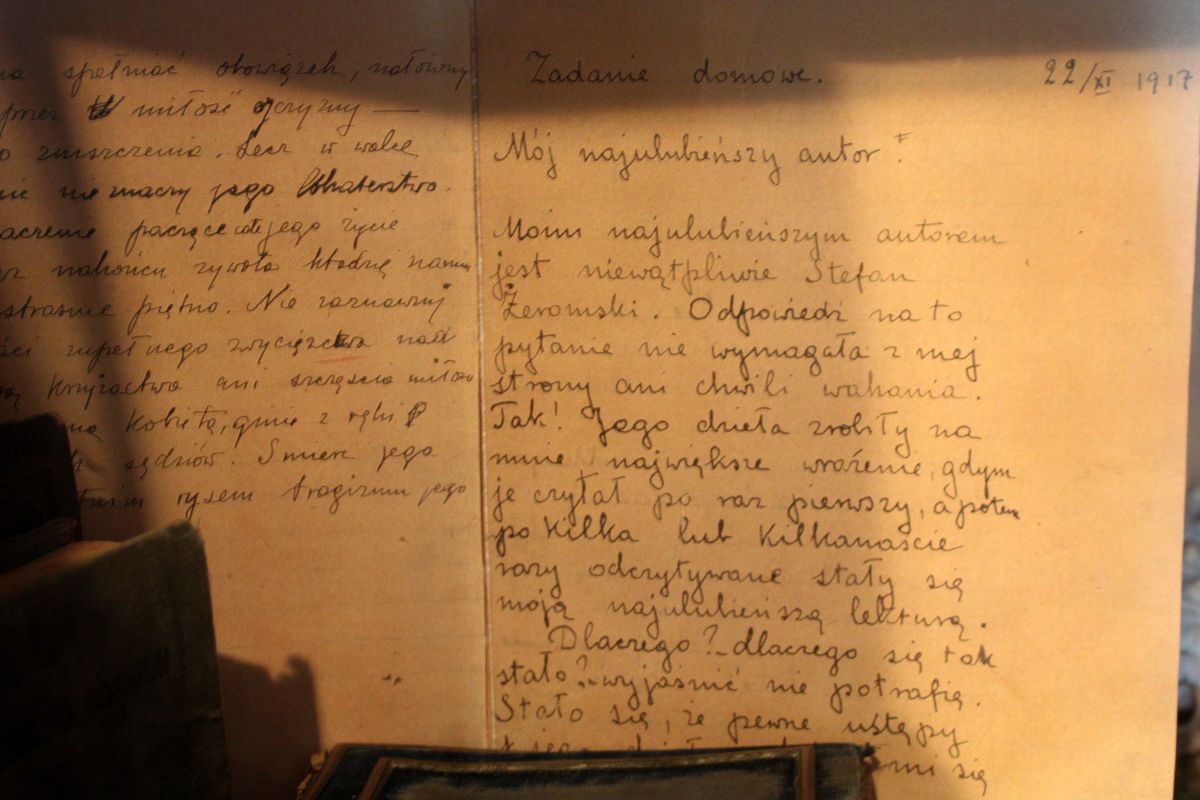 spełniać obowiązek,
przez miłość ojczyzny —
zniszczenia. Lecz w walce
nie znaczy jego bohaterstwo.
jego życie
żywota kładzie
straszne piętno. Nie zaznawszy
zupełnego zwycięztwa nad
Krzyżactwa ani szczęścia miłości
kobietą, ginie z ręki
sędziów. Śmierć jego
rysem tragizmu jego
Zadanie domowe. 22/XI 1917
Mój najulubieńszy autor.
Moim najulubieńszym autorem
jest niewątpliwie Stefan
Żeromski. Odpowiedź na to
pytanie nie wymagała z mej
strony ani chwili wahania.
Tak! Jego dzieła zrobiły na
mnie największe wrażenie, gdym
je czytał po raz pierwszy, a potem
po kilka lub kilkanaście
razy odczytywane stały się
moją najulubieńszą lekturą.
Dlaczego? – dlaczego się tak
stało? – wyjaśnić nie potrafię.
Stało się, że pewne ustępy
się